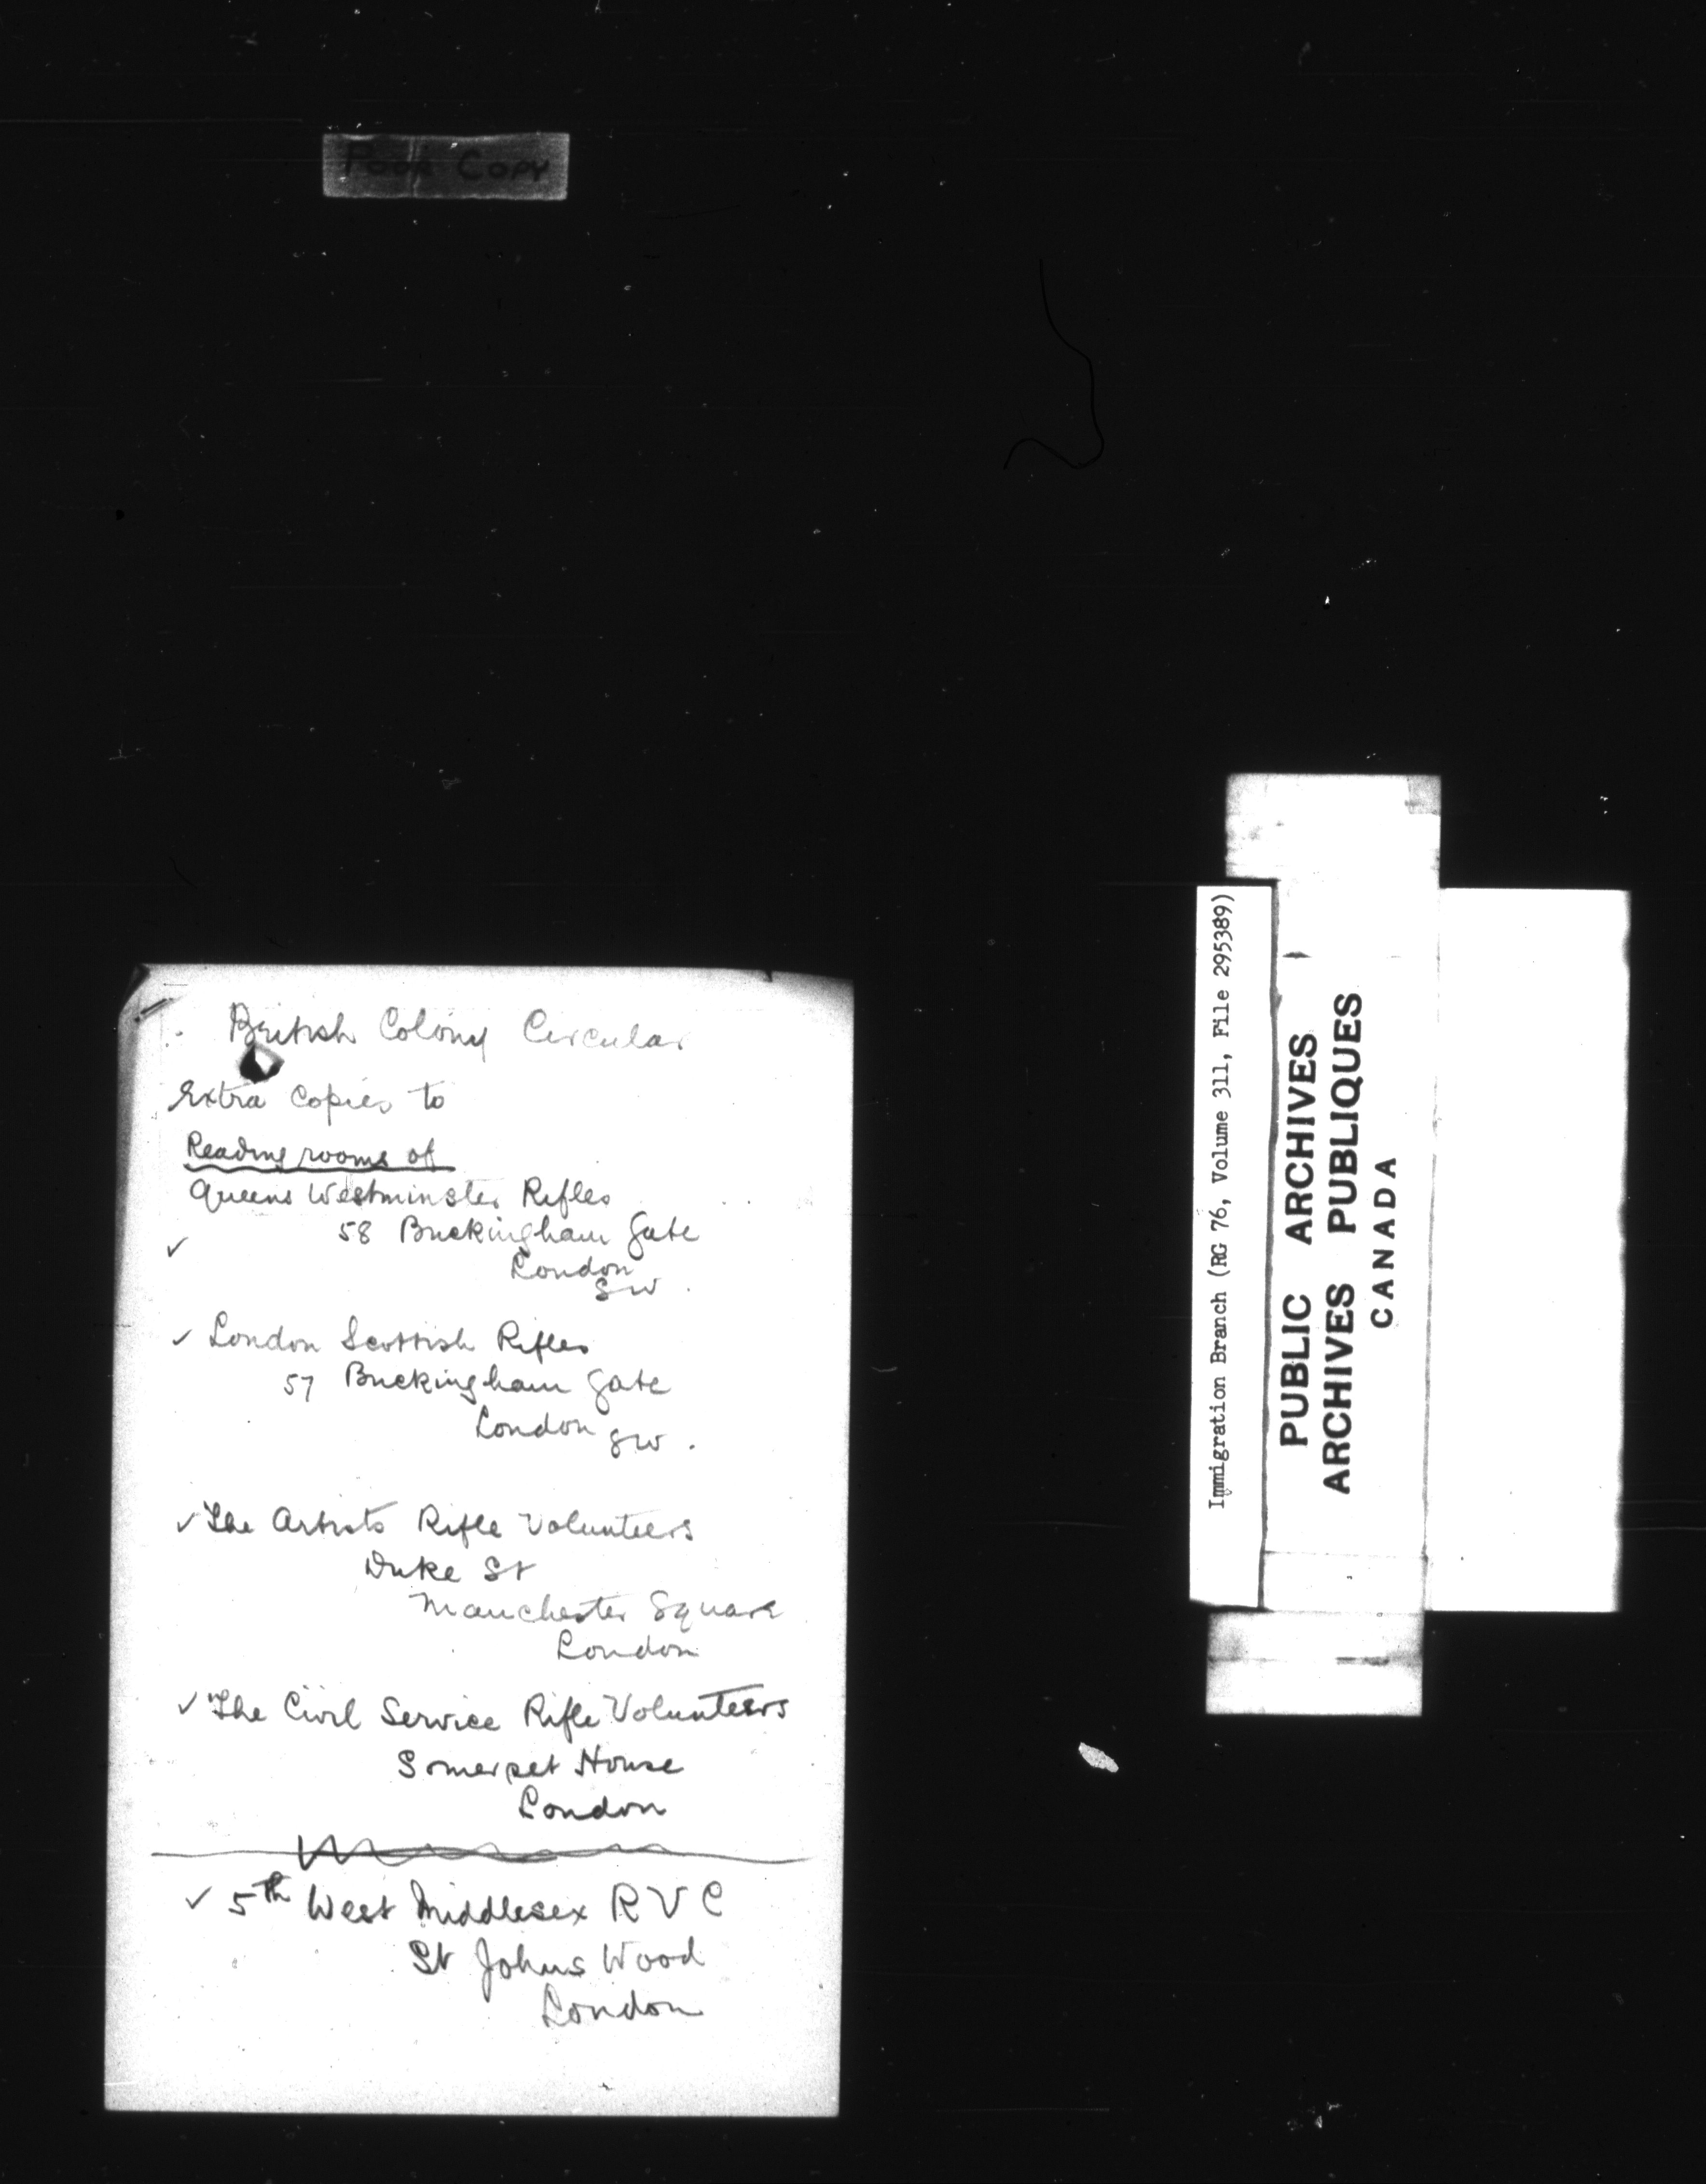 Poor Copy
British Colony Circular
Extra Copies to
Reading rooms of
Queens Westminster Rifles
✓ 58 Buckingham Gate
London
SW.
✓ London Scottish Rifles
57 Buckingham Gate
London SW.
✓ The Artists Rifle Volunteers
Duke St
Manchester Square
London
✓ The Civil Service Rifle Volunteers
Somerset House
London
✓ 5th West Middlesex R V C
St Johns Wood
London
Immigration Branch (RG 76, Volume 311, File 295389)
PUBLIC ARCHIVES
ARCHIVES PUBLIQUES
CANADA